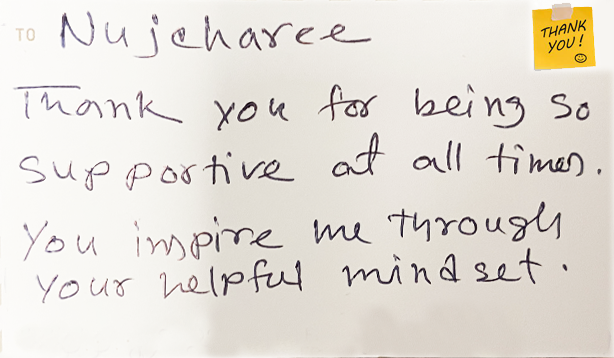 TO Nujcharee
THANK
YOU!
Thank you for being so
supportive at all times.
You inspire me through
your helpful mindset.